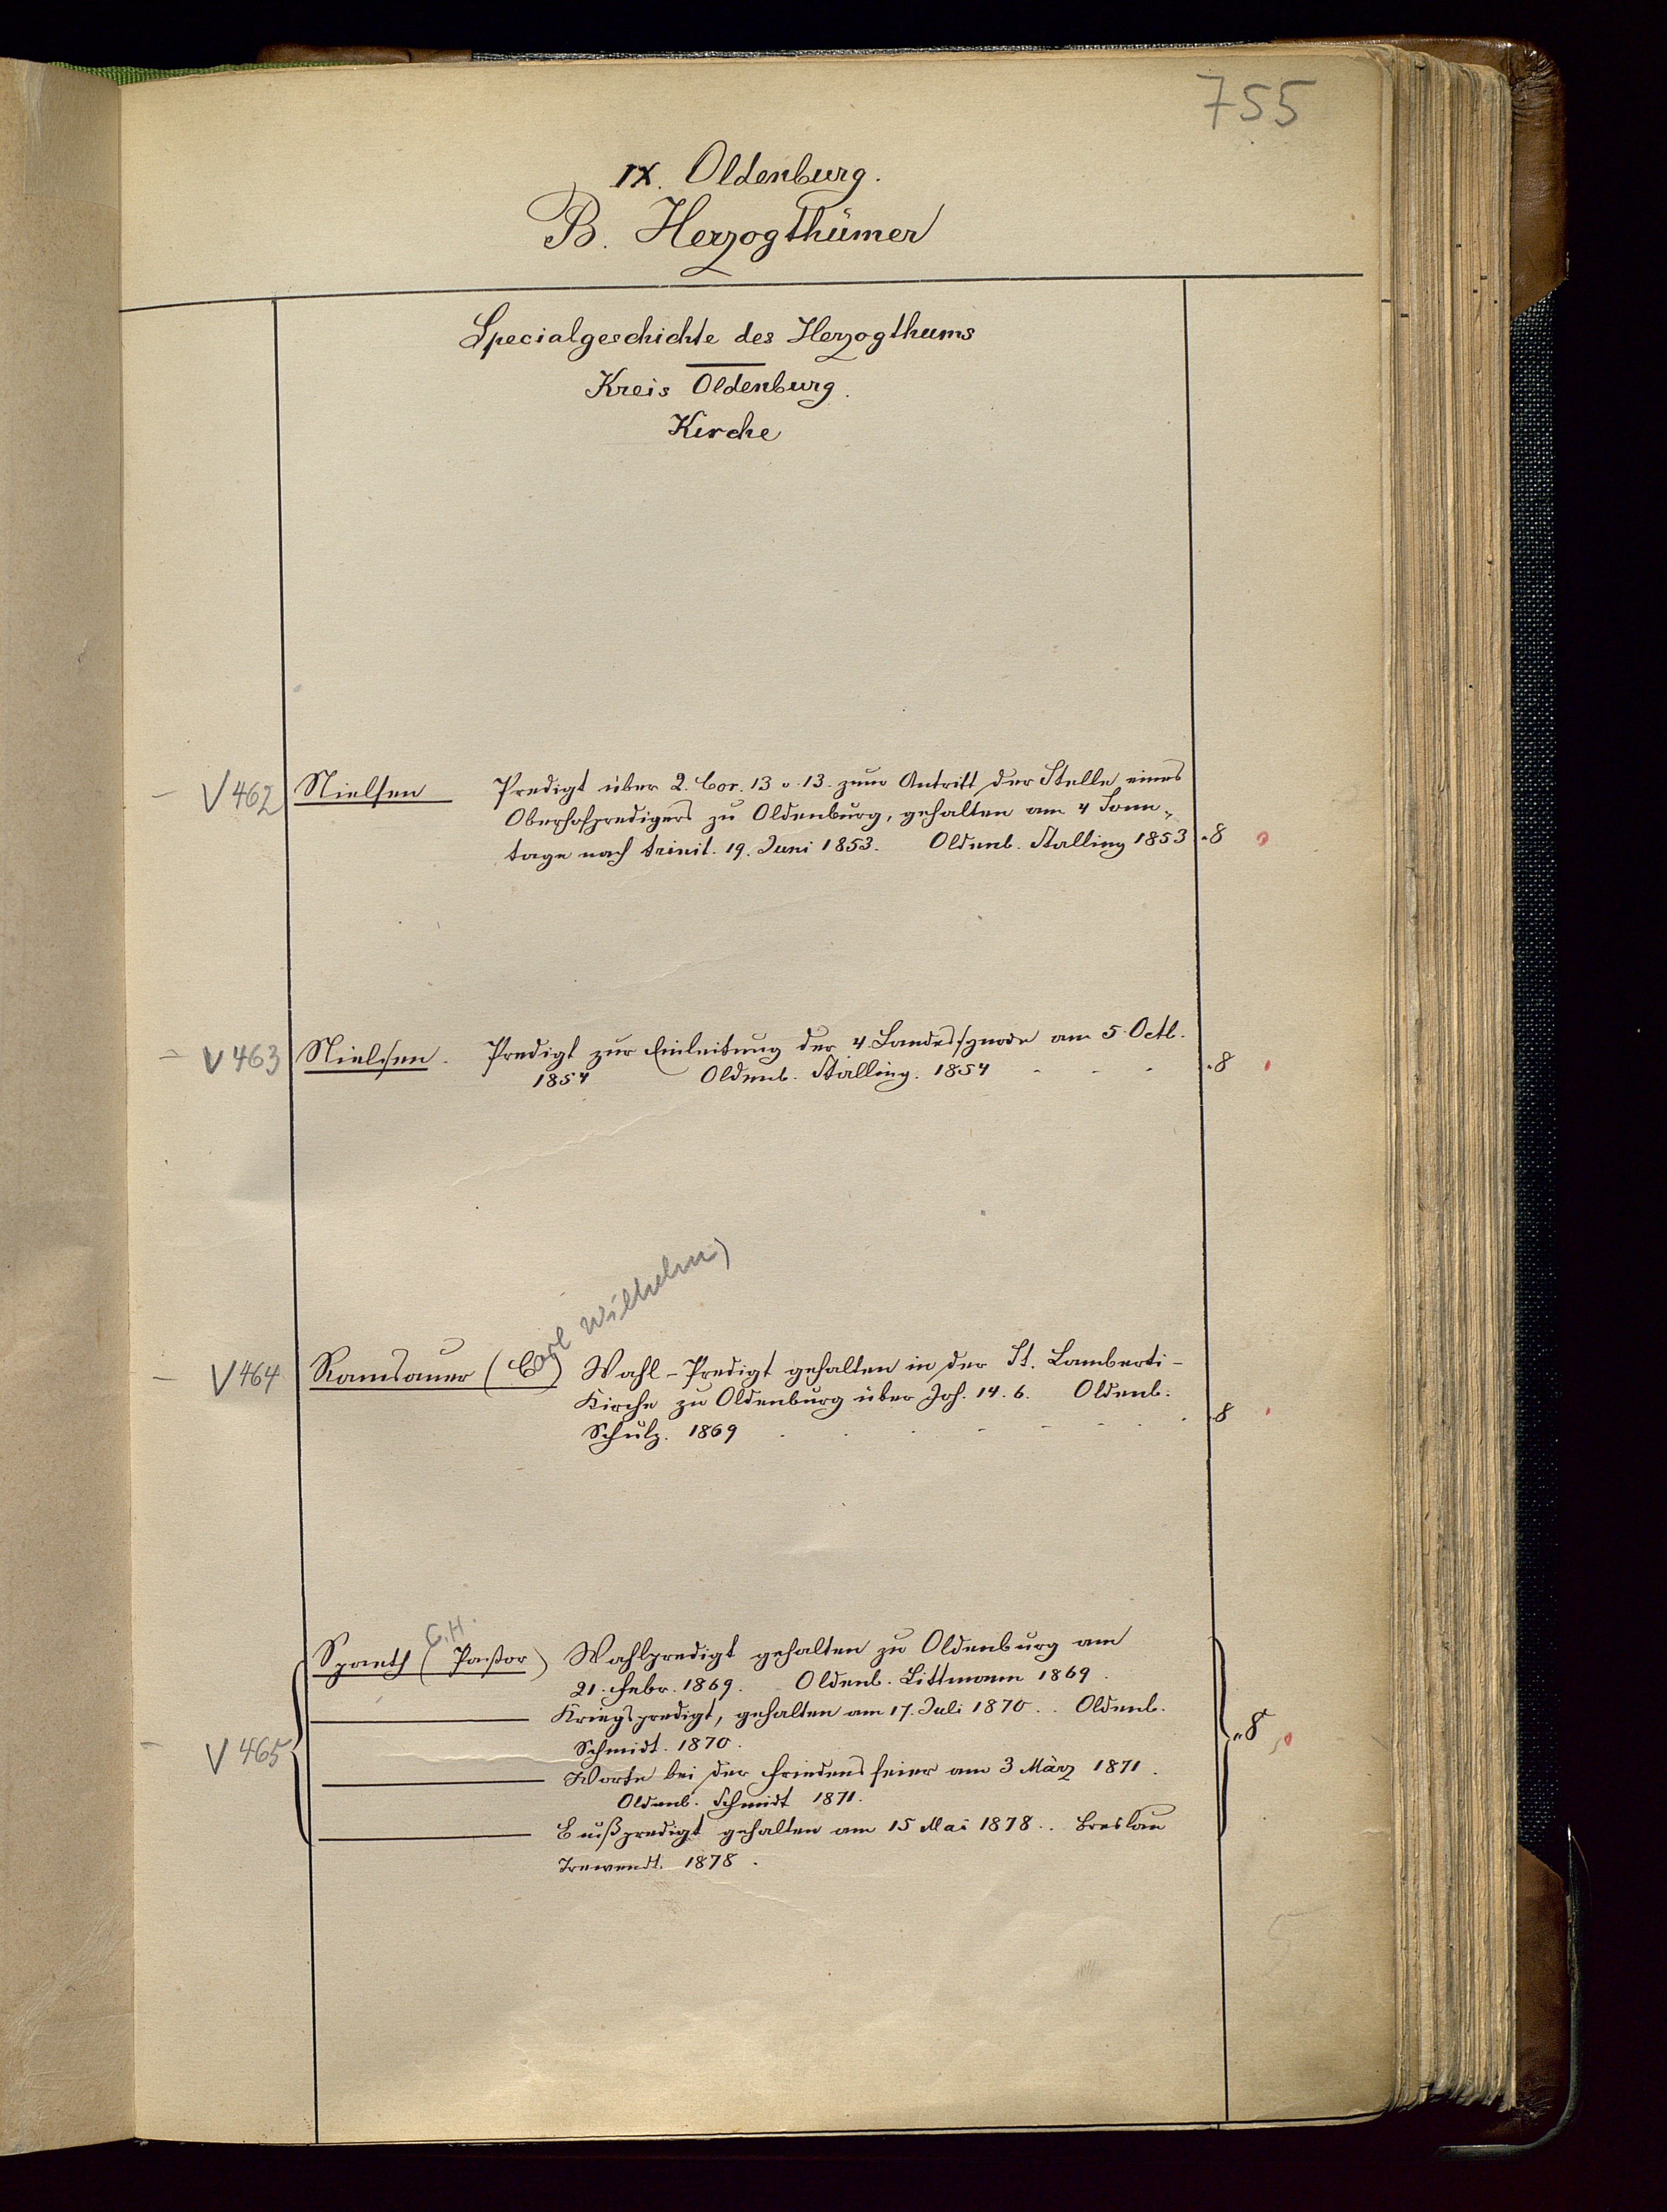 755
IX. Oldenburg.
B. Herzogthümer
Specialgeschichte des Herzogthums
Kreis Oldenburg.
Kirche
V 462 Nielsen Predigt über 2. Cor. 13 v. 13. zum Antritt der Stelle eines
Oberhofpredigers zu Oldenburg, gehalten am 4 Sonn-
tage nach trinit. 19. Juni 1853. Oldenb. Stalling 1853 "8
V 463 Nielsen. Predigt zur Einleitung der 4. Landessynode am 5. Octb.
1854 Oldenb. Stalling. 1854 - - - "8
Carl Wilhelm)
V 464 Ramsauer (C) Wahl-Predigt gehalten in der St. Lamberti-
Kirche zu Oldenburg über Joh. 14. 6. Oldenb.
Schulz. 1869 . . . - - - . . 8
C.H.
Spaeth (Pastor) Wahlpredigt gehalten zu Oldenburg am
21. Febr. 1869. Oldenb. Littmann 1869.
Kriegspredigt, gehalten am 17. Juli 1870. . Oldenb.
V 465 Schmidt. 1870. "8
Worte bei der Friedensfeier am 3 März 1871.
Oldenb. Schmidt 1871.
Bußpredigt gehalten am 15 Mai 1878. . Breslau
Trewendt. 1878.
5